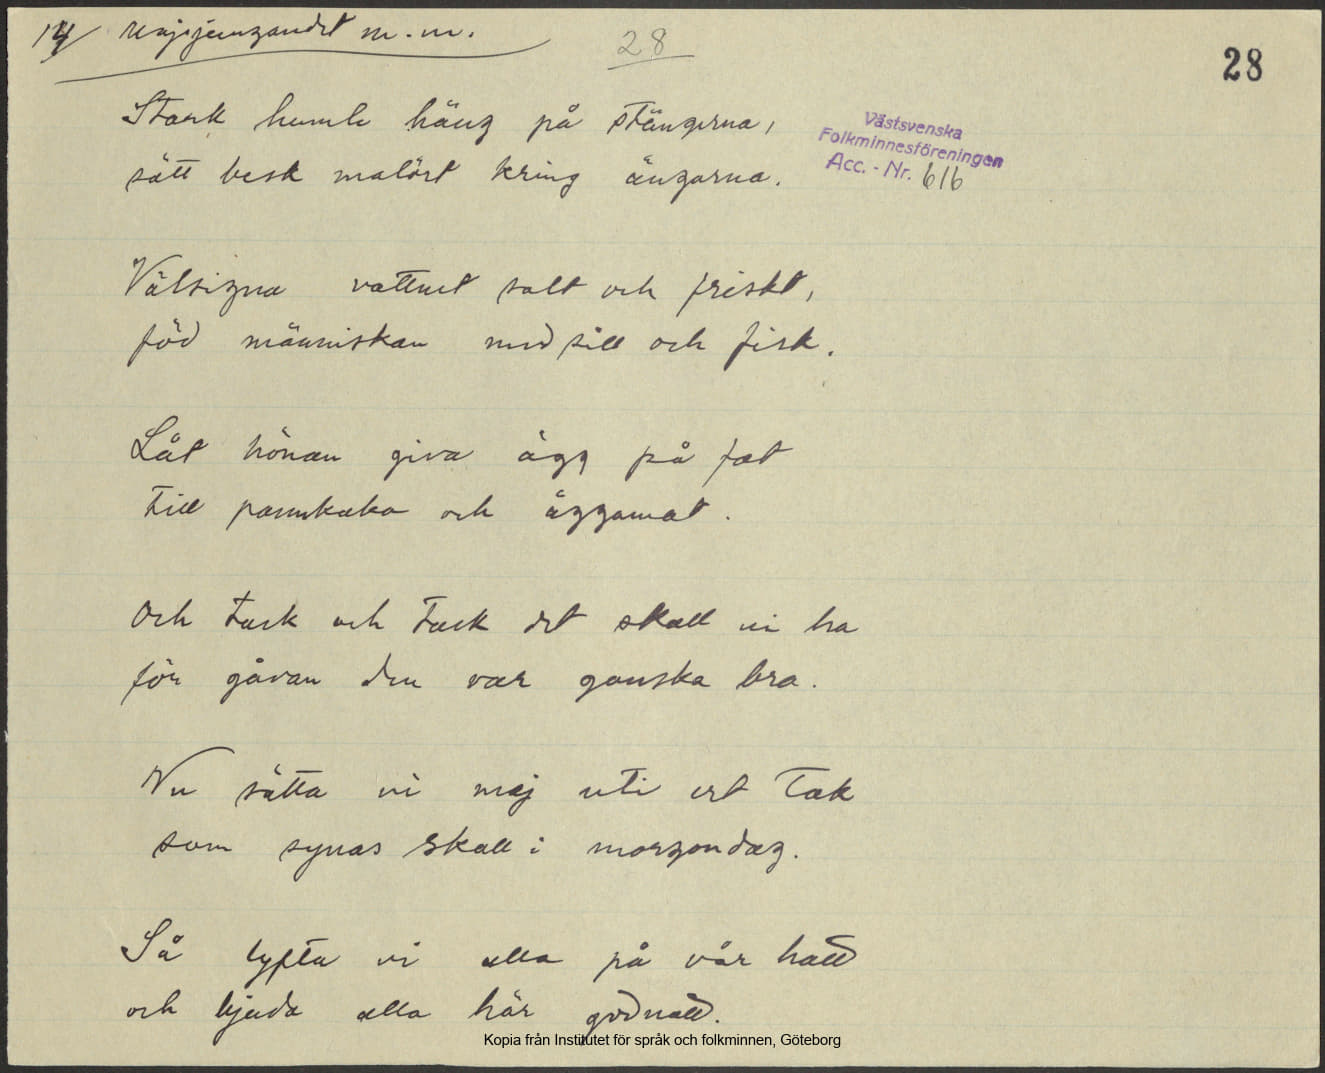 14/ Majsjungandet m.m.
28
28
Stark humle häng på stängerna,
sätt besk malört kring ängarna.
Västsvenska
Folkminnesföreningen
Acc. - Nr. 616
Välsigna vattnet salt och friskt,
föd människan med sill och fisk.
Låt hönan giva ägg på fat
till pannkaka och äggamat.
Och tack och tack det skall vi ha
för gåvan den var ganska bra.
Nu sätta vi maj uti ert tak
som synas skall i morgondag.
Så lyfta vi alla på vår hatt
och bjuda alla här godnatt.
Kopia från Institutet för språk och folkminnen, Göteborg